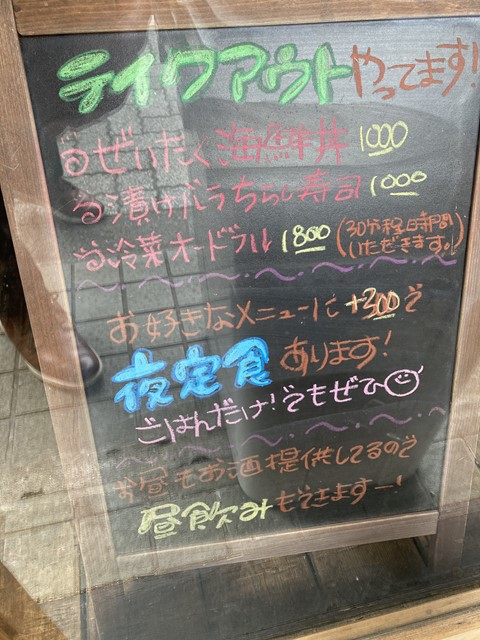 テイクアウトやってます!
る ぜいたく海鮮丼 1000
る 漬けバラちらし寿司 1000
る 冷菜オードブル 1800 (30分程お時間いただきます。)
お好きなメニューに+300で
夜定食あります!
ごはんだけ!でもぜひ
お昼もお酒提供してるので
昼飲みもできますー!